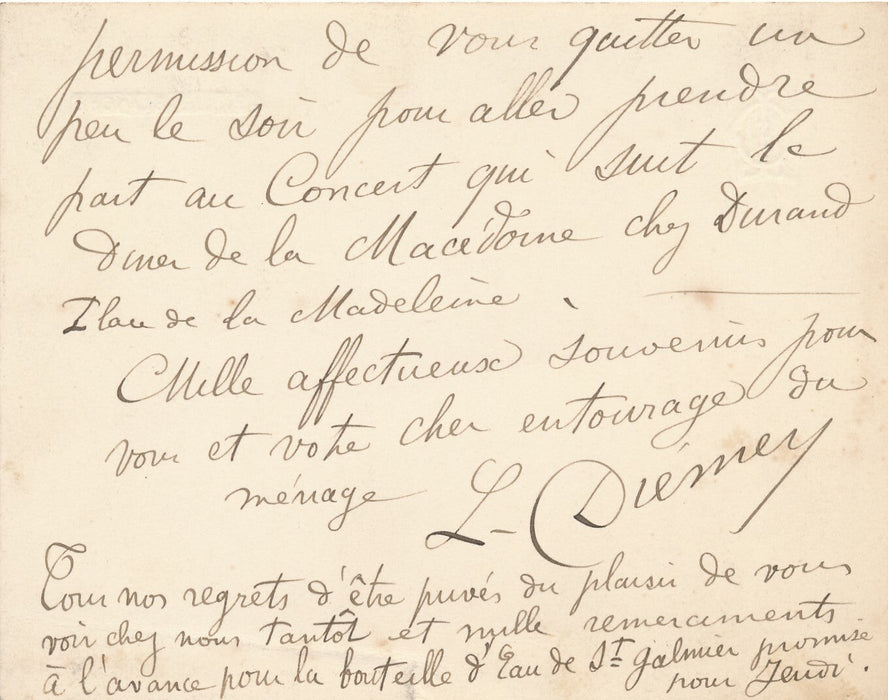 permission de vous quitter un
peu le soir pour aller prendre
part au Concert qui suit le
Diner de la Macédoine chez Durand
Place de la Madeleine.
Mille affectueux souvenirs pour
vous et votre cher entourage du
ménage L. Diémer
Tous nos regrets d'être privés du plaisir de vous
voir chez nous tantôt et mille remerciments
à l'avance pour la bouteille d'Eau de St Galmier promise
pour Jeudi.